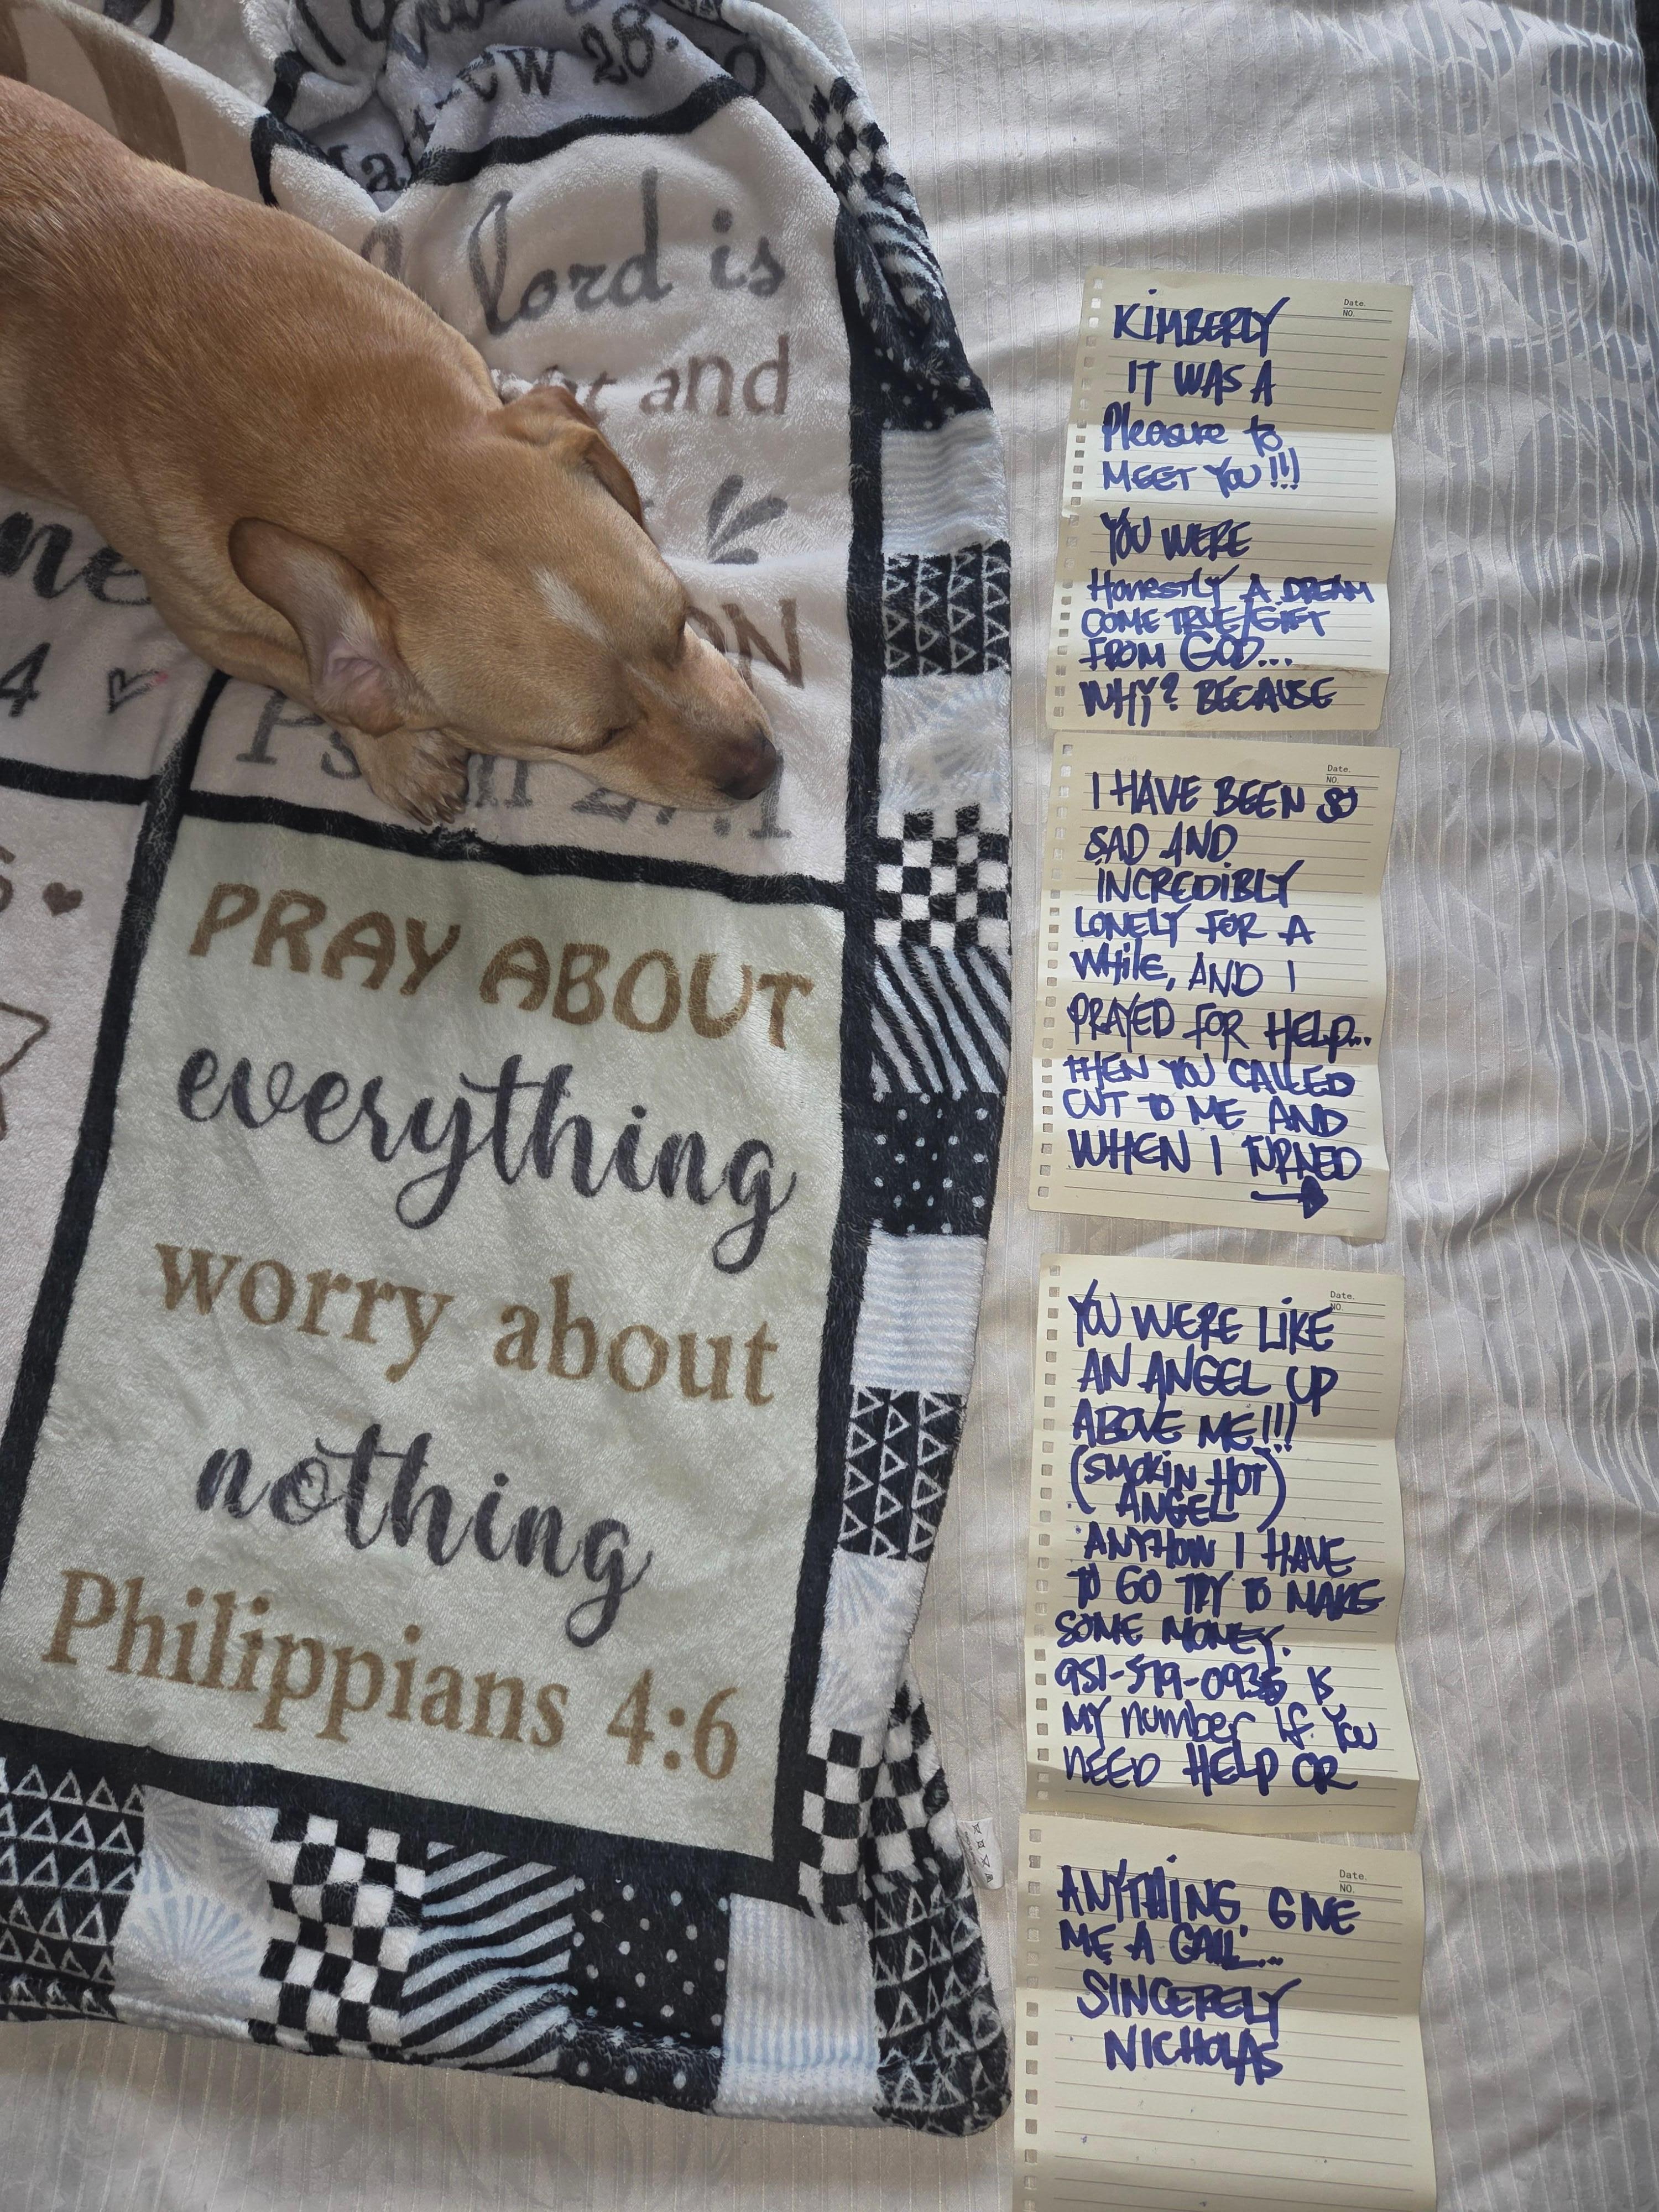 CW 28:
lord is
and
ON
Psalm 27:1
me
4
PRAY ABOUT
everything
worry about
nothing
Philippians 4:6
Date.
NO.
KIMBERLY
IT WAS A
Pleasure to
MEET YOU!!!
YOU WERE
HONESTLY A DREAM
COME TRUE/GIFT
FROM GOD...
WHY? BECAUSE
Date.
NO.
I HAVE BEEN SO
SAD AND
INCREDIBLY
LONELY FOR A
While, AND I
PRAYED FOR HELP...
THEN YOU CALLED
OUT TO ME AND
WHEN I TURNED
Date.
NO.
YOU WERE LIKE
AN ANGEL UP
ABOVE ME!!!
(SMOKIN HOT
ANGEL)
ANYHOW I HAVE
TO GO TRY TO MAKE
SOME MONEY.
951-579-0935 IS
MY number if You
NEED HELP OR
Date.
NO.
ANYTHING, GIVE
ME A CALL...
SINCERELY
NICHOLAS